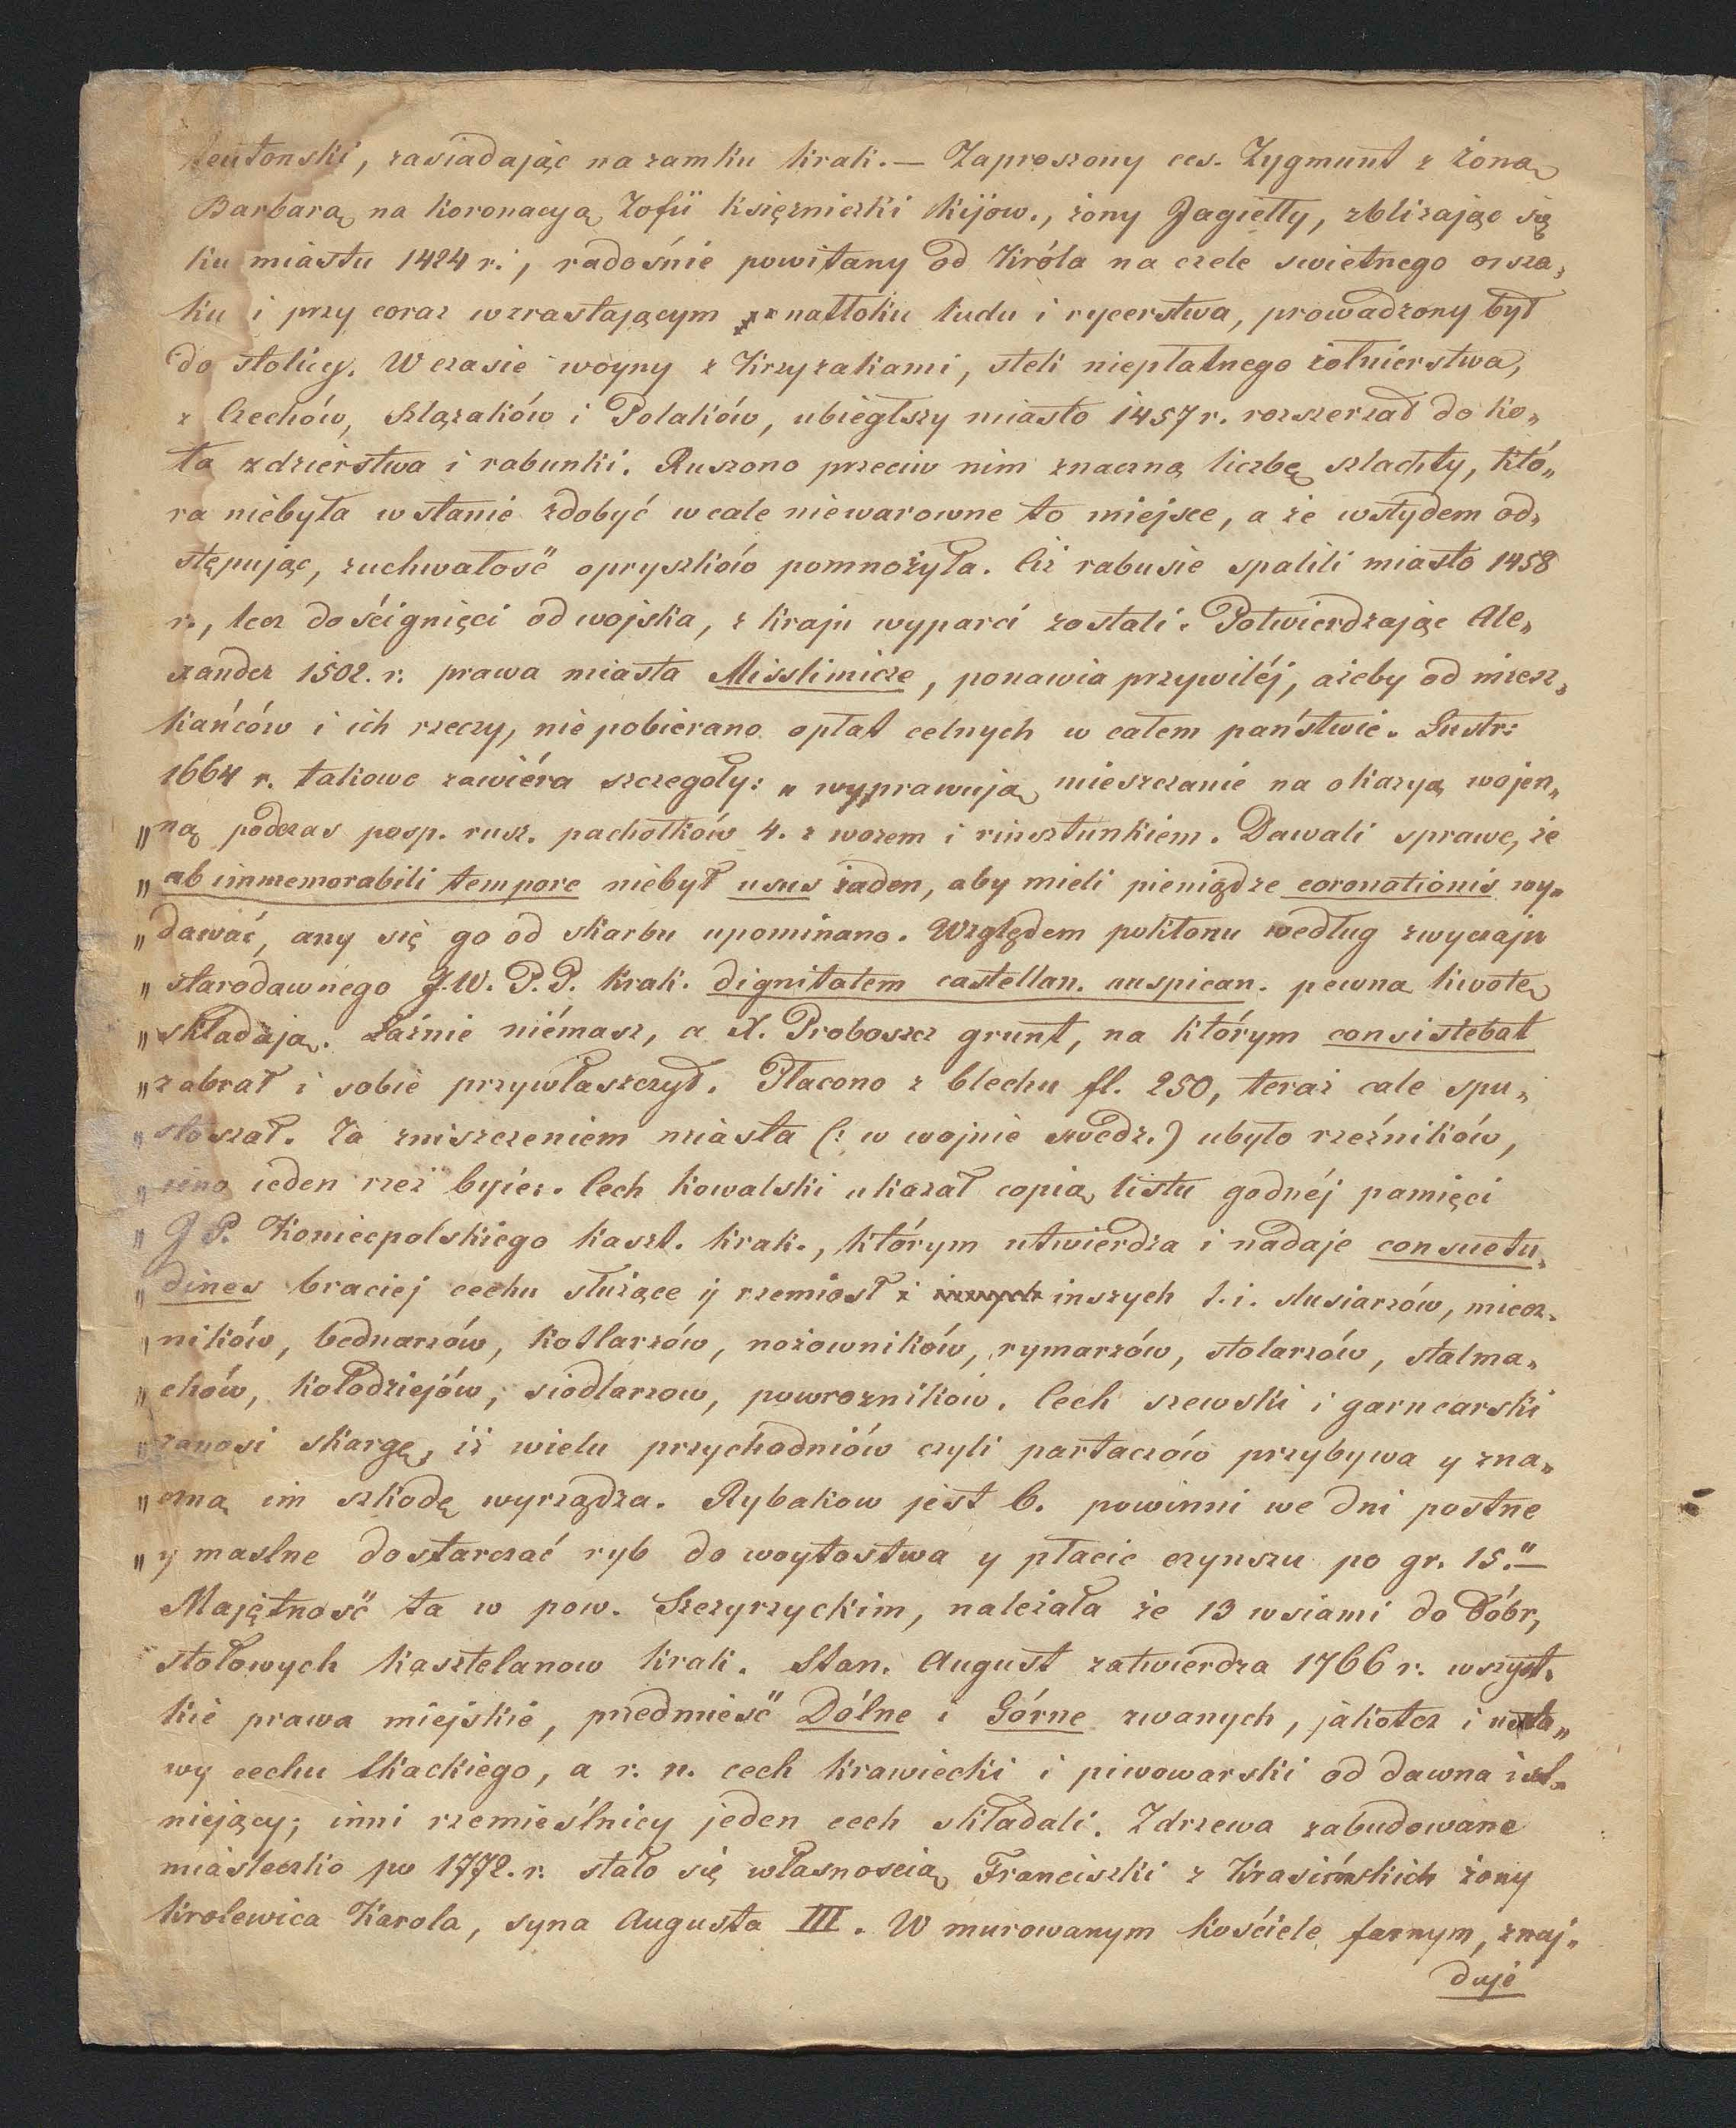 teutonski, zasiadając na zamku krak. — Zaproszony ces. Zygmunt z żoną
Barbarą na koronacyą Zofii księżniczki kijow., żony Jagiełły, zbliżając się
ku miastu 1424 r., radośnie powitany od Króla na czele swietnego orsza„
ku i przy coraz wzrastającym natłoku ludu i rycerstwa, prowadzony był
do stolicy. W czasie woyny z Krzyżakami, steli niepłatnego żołnierstwa,
z Czechów, Szlązaków i Polaków, ubiegłszy miasto 1457 r. rozszerzał do ko„
ła zdzierstwa i rabunki. Ruszono przeciw nim znaczną liczbę szlachty, któ„
ra niebyła w stanie zdobyć wcale niewarowne to miejsce, a ze wstydem od„
stępując, zuchwałość opryszków pomnożyła. Ciż rabusie spalili miasto 1458
r., lecz doścignięci od wojska, z kraju wyparci zostali. Potwierdzając Ale„
xander 1502. r. prawa miasta Misslimicze, ponawia przywiléj, ażeby od miesz„
kańców i ich rzeczy, nie pobierano opłat celnych w całem państwie. Lustr:
1664 r. takowe zawiéra szczegoły: „ wyprawują mieszczanie na okazyą wojen„
„ną podczas posp. rusz. pachołków 4. z wozem i rinsztunkiem. Dawali sprawe, że
„ab immemorabili tempore niebył usus żaden, aby mieli pieniądze coronationis wy„
„dawać, any się go od skarbu upominano. Względem poklonu według zwyczaju
„starodawnego J.W. P.P. krak. dignitatem castellan. auspican. pewna kwotę
„składają. Łaźnie niémasz, a X. Proboszcz grunt, na którym consistebat
„zabrał i sobie przywłaszczył. Płacono z blechu fl. 250, teraz cale spu„
„stoszał. Za zniszczeniem miasta (: w wojnie szwedz.) ubyło rzeźników,
„ieno ieden rzeź byiez. Cech kowalski ukazał copią listu godnéj pamięci
„J P. Koniecpolskiego kaszt. krak., którym utwierdza i nadaje consuetu„
„dines braciej cechu służące ij rzemiosł inszych t.i. slusiarzów, miecz„
„ników, bednarzów, kotlarzów, nożowników, rymarzów, stolarzów, stalma„
„chów, kołodziejów, siodlarzow, powrozników. Cech szewski i garncarski
„zanosi skargę, iż wielu przychodniów czyli partaczów przybywa y zna„
„czną im szkodę wyrządza. Rybakow jest 6. powinni we dni postne
„y maslne dostarczać ryb do woytostwa y płacic czynszu po gr. 15." —
Majętność ta w pow. Szczyrzyckim, należała ze 13 wsiami do dóbr,
stołowych kasztelanow krak. Stan. August zatwierdza 1766 r. wszyst„
kie prawa miejskie, przedmieść Dólne i Górne zwanych, jakotez i usta„
wy cechu tkackiego, a r. n. cech krawiecki i piwowarski od dawna ist„
niejący; inni rzemieślnicy jeden cech składali. Z drzewa zabudowane
miasteczko po 1772. r. stało się własnoscią Franciszki z Krasińskich żony
krolewica Karola, syna Augusta III. W murowanym kościele farnym, znaj„
duje